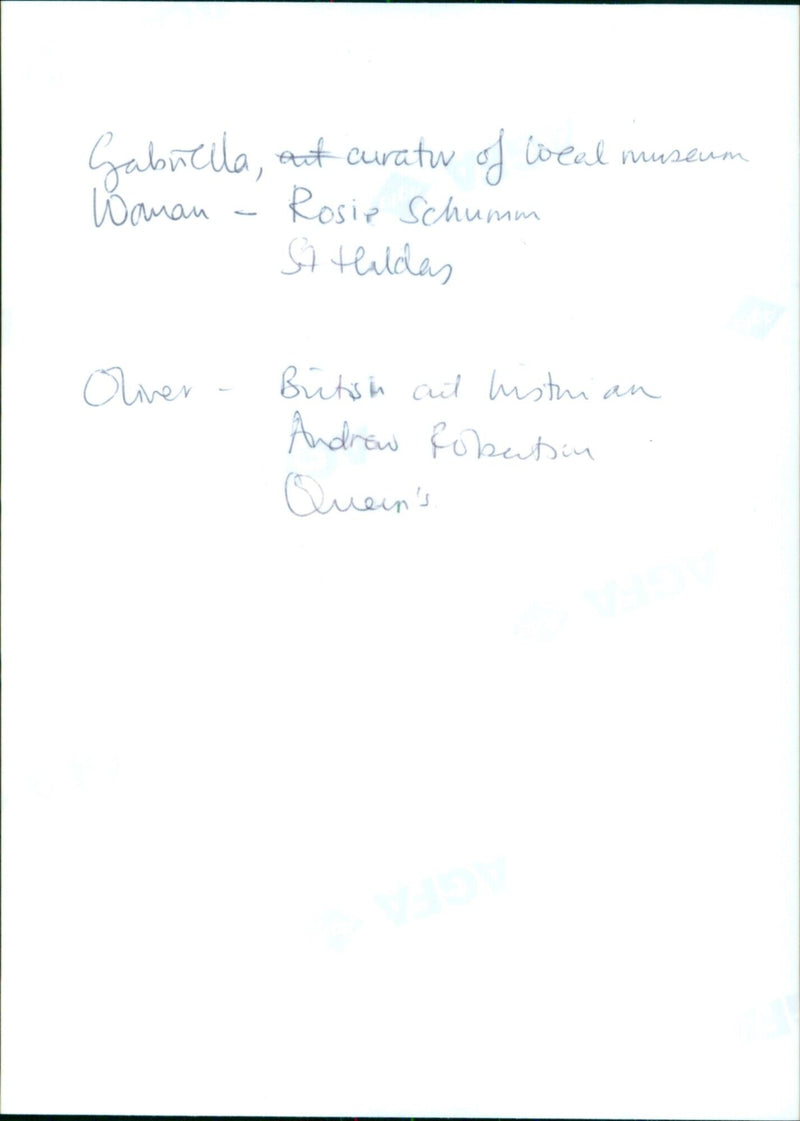 Gabriella, art curator of local museum
Woman - Rosie Schumm
St Hildas
Oliver - British art historian
Andrew Robertson
Queen's
AGFA
AGFA